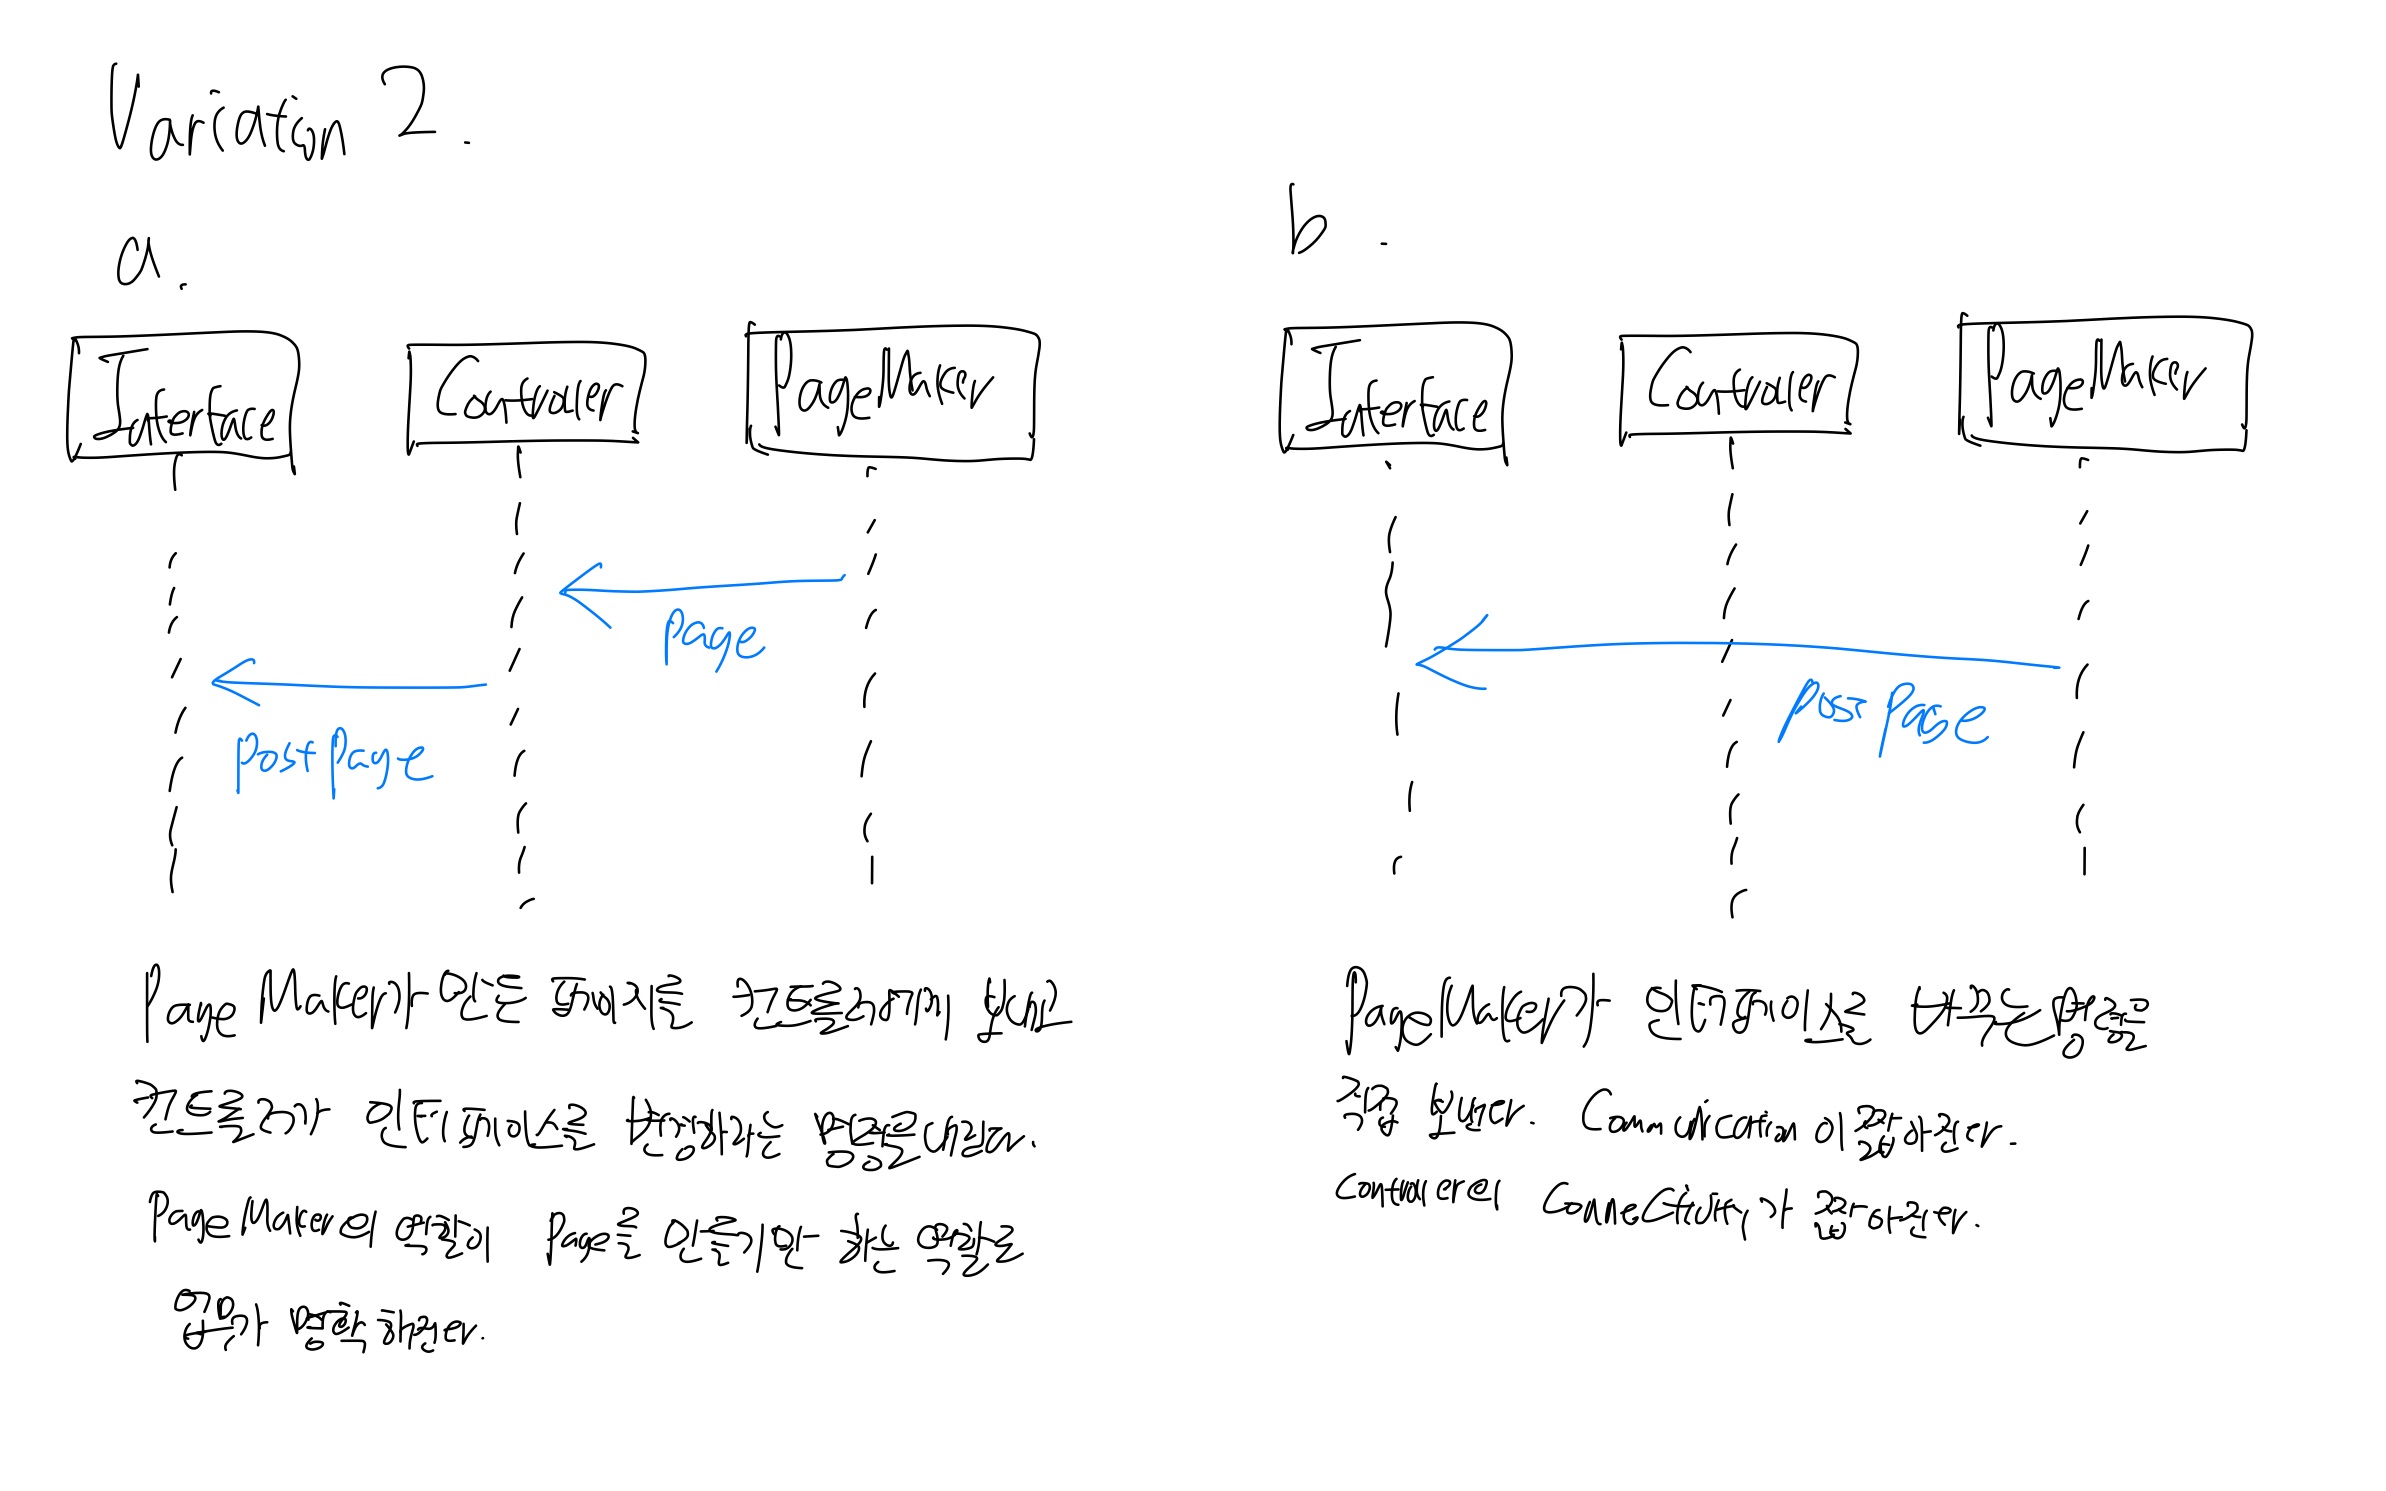 Variation 2.
a.
Interface
Controller
PageMaker
page
postpage
PageMaker가 만든 페이지를 컨트롤러에게 보내고
컨트롤러가 인터페이스를 변경하라는 명령을 내린다.
PageMaker의 역할이 Page를 만들기만 하는 역할로
업무가 명확해진다.
b.
Interface
Controller
PageMaker
postpage
PageMaker가 인터페이스를 바꾸는 명령을
직접 보낸다. Communication이 짧아진다.
controller의 Connectivity가 짧아진다.